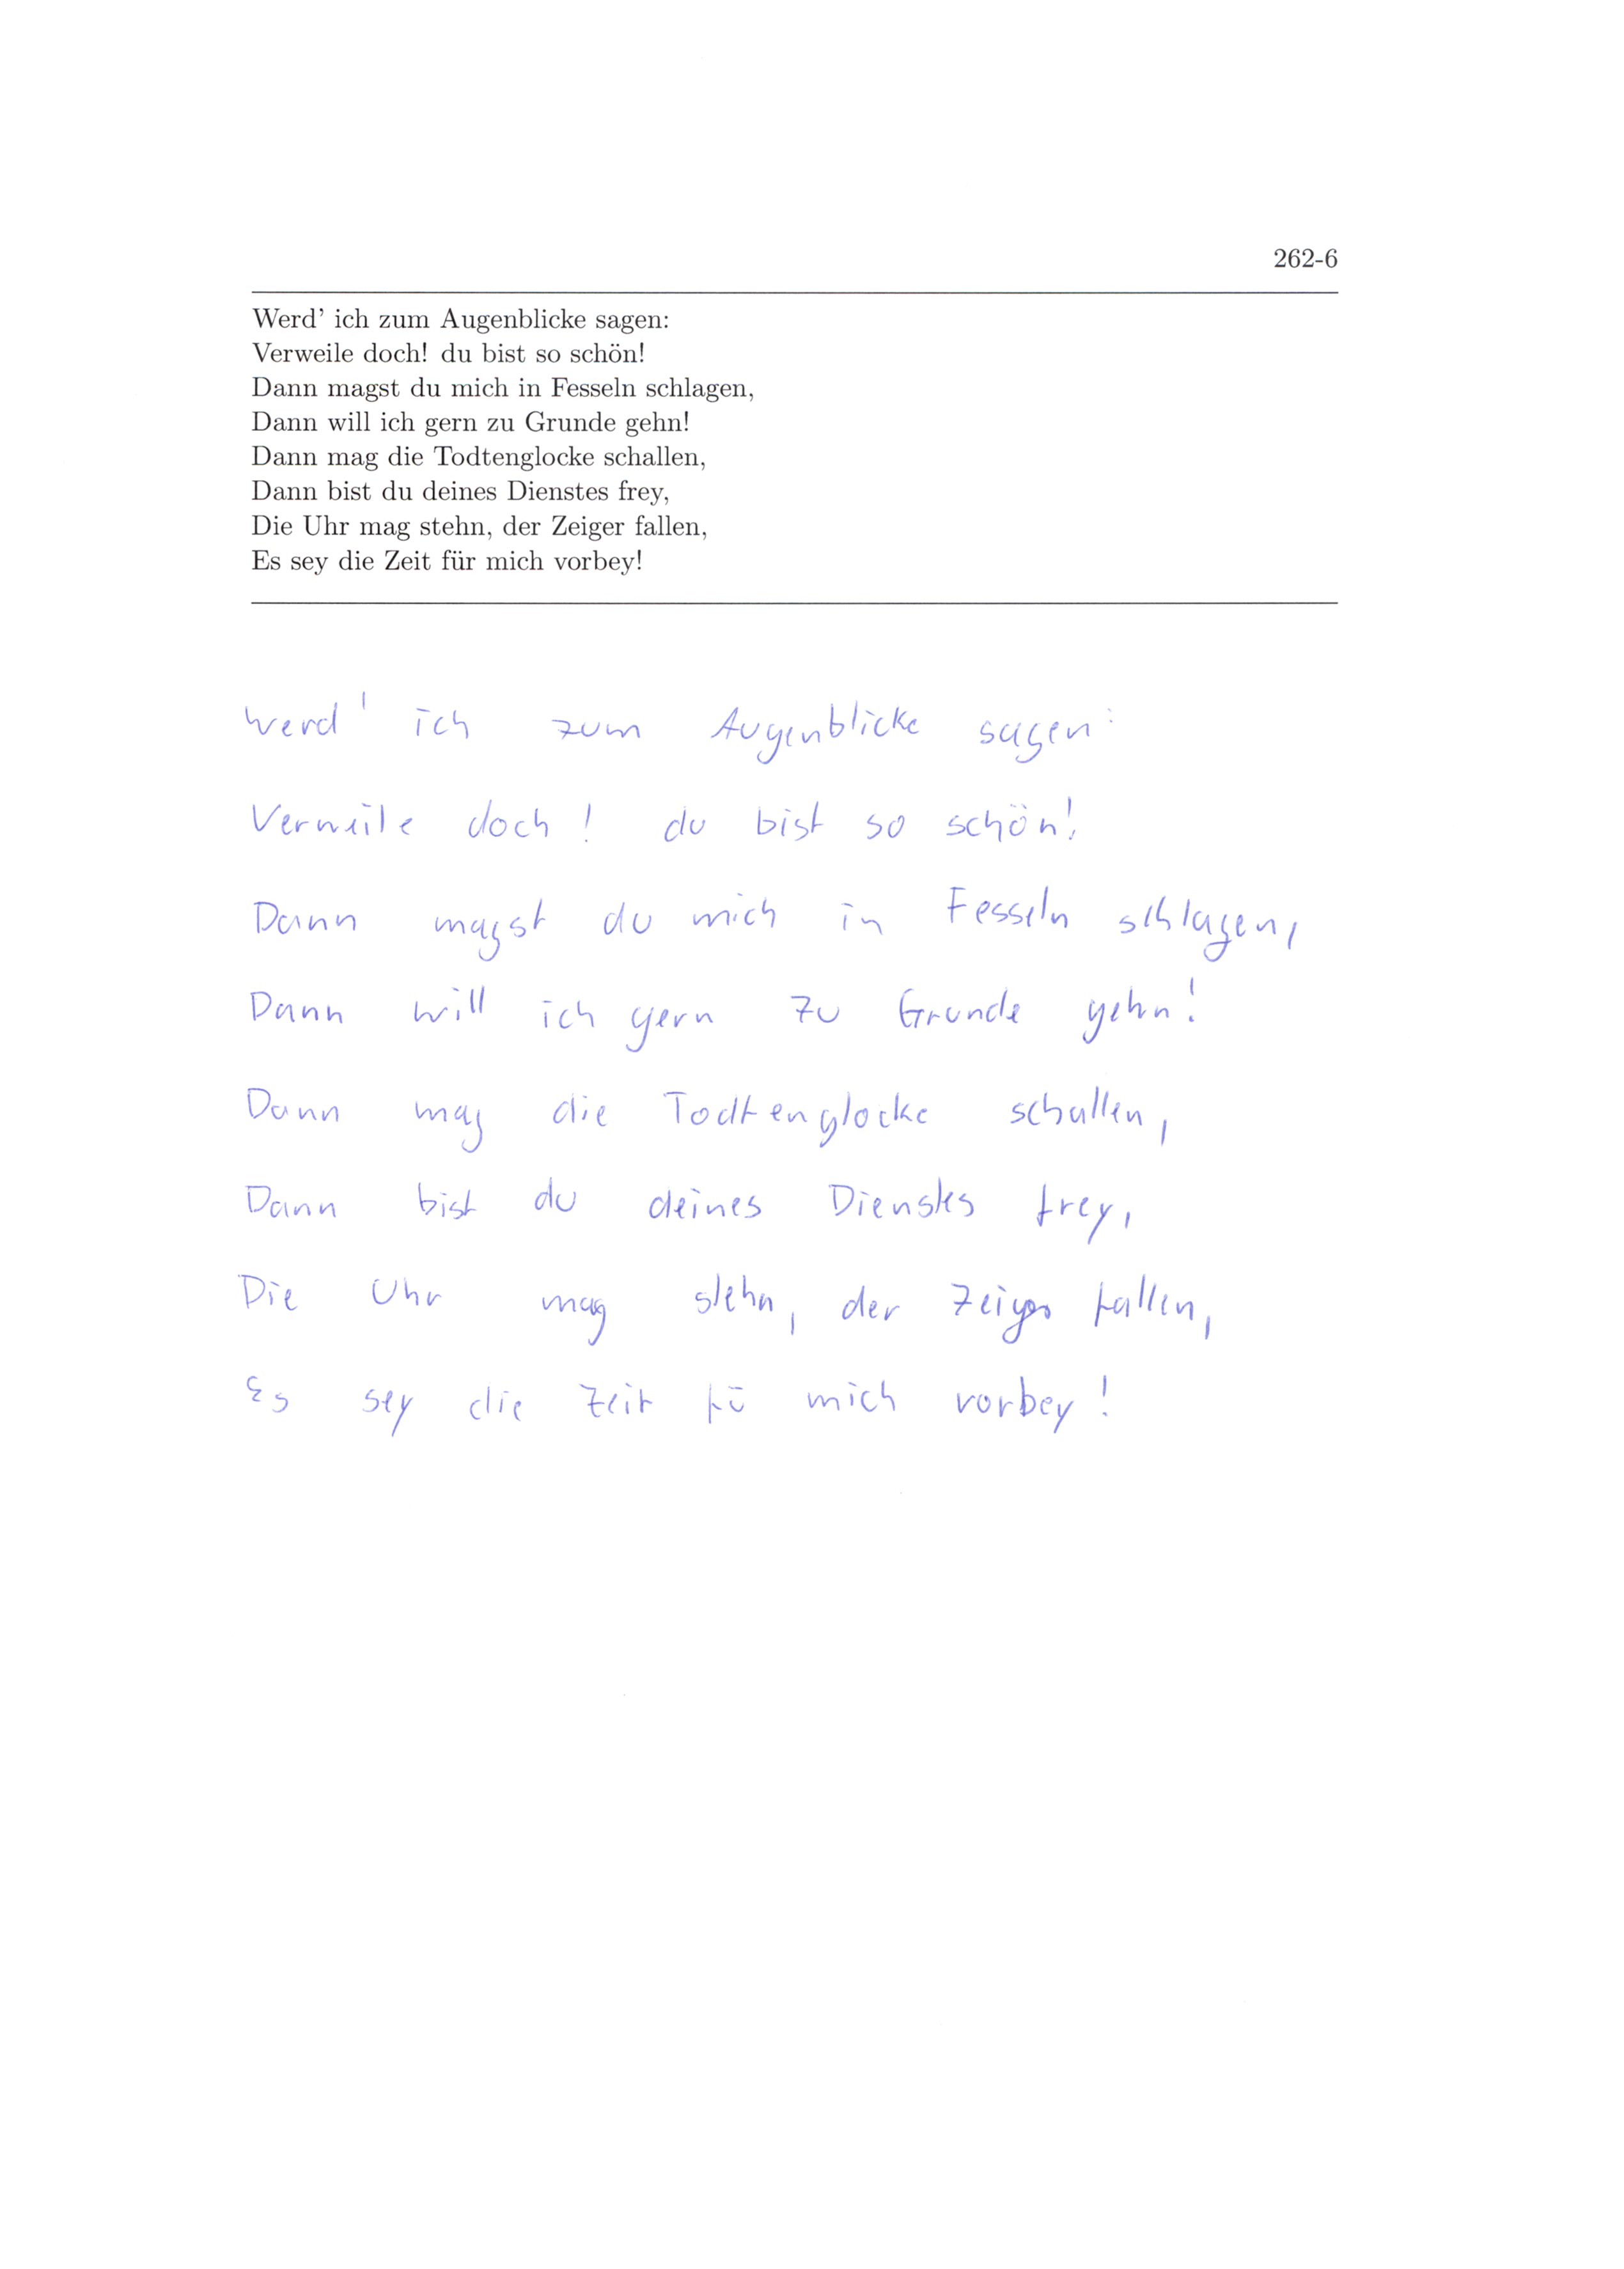 262-6
Werd' ich zum Augenblicke sagen:
Verweile doch! du bist so schön!
Dann magst du mich in Fesseln schlagen,
Dann will ich gern zu Grunde gehn!
Dann mag die Todtenglocke schallen,
Dann bist du deines Dienstes frey,
Die Uhr mag stehn, der Zeiger fallen,
Es sey die Zeit für mich vorbey!
Werd' ich zum Augenblicke sagen:
Verweile doch! du bist so schön!
Dann magst du mich in Fesseln schlagen,
Dann will ich gern zu Grunde gehn!
Dann mag die Todtenglocke schallen,
Dann bist du deines Dienstes frey,
Die Uhr mag stehn, der Zeiger fallen,
Es sey die Zeit fü mich vorbey!